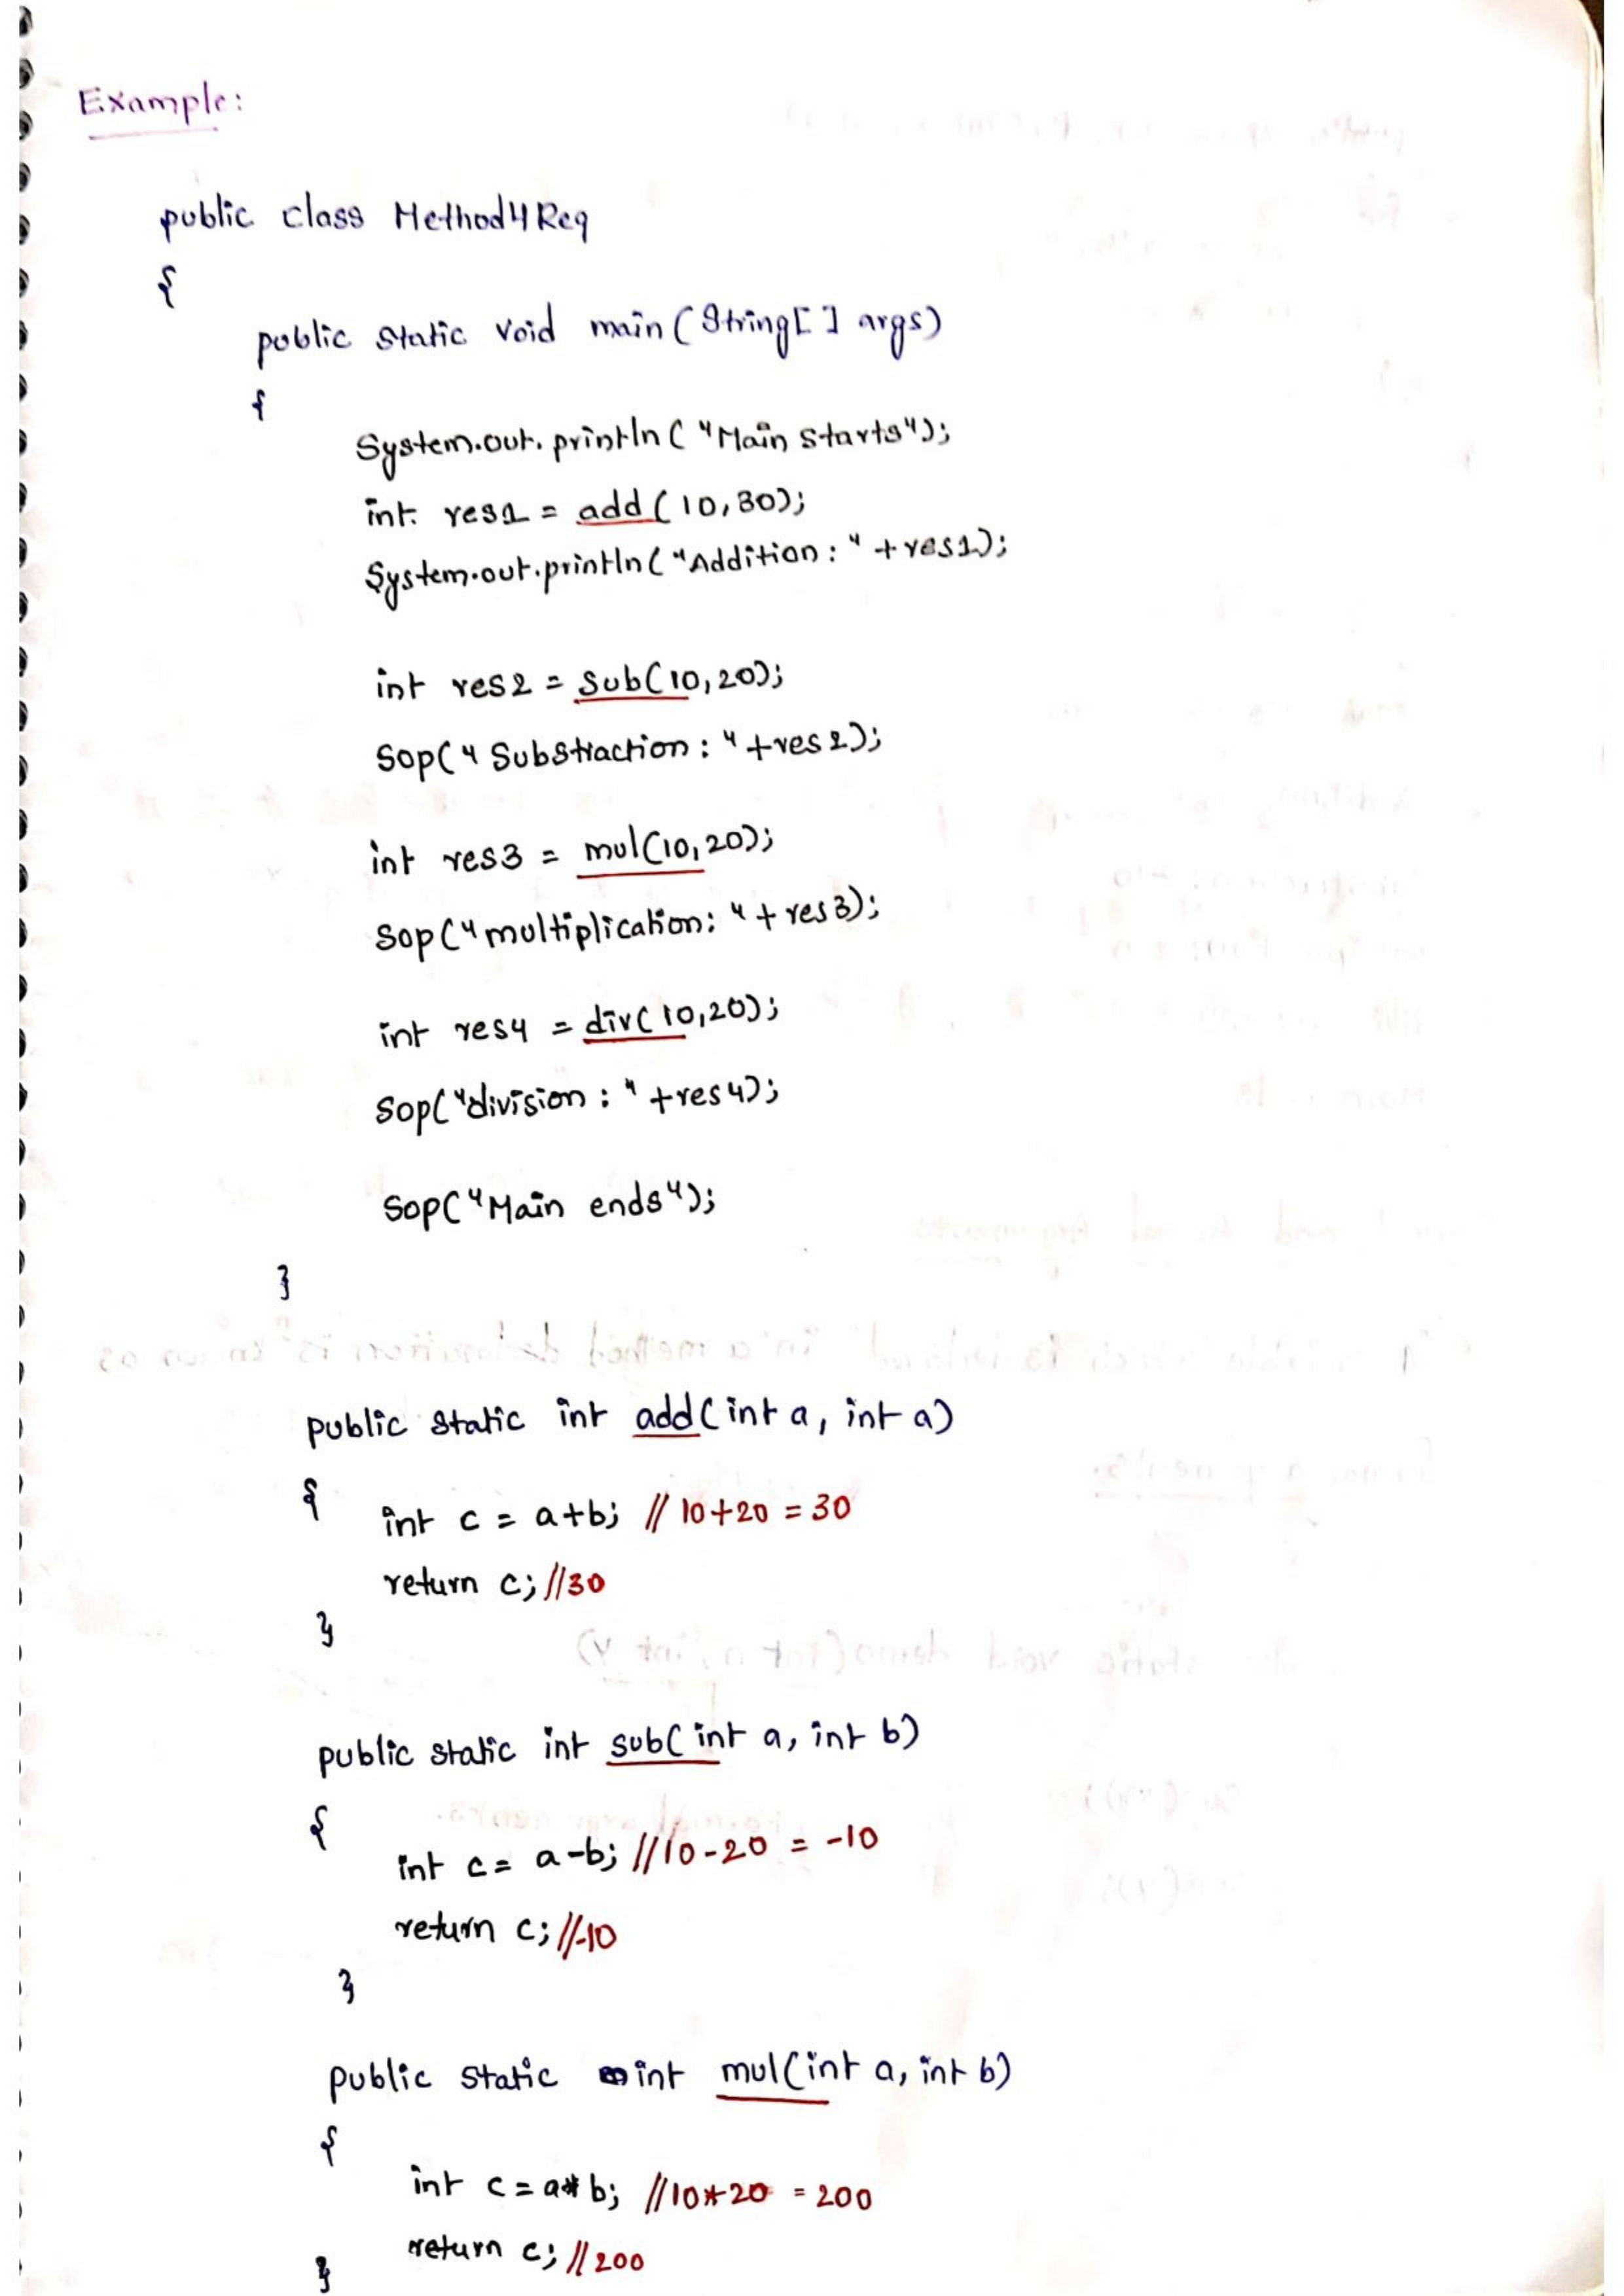 Example:
public class Method4Req
{
public static void main(String[] args)
{
System.out.println("Main starts");
int res1 = add(10,30);
System.out.println("Addition:" +res1);
int res2 = sub(10,20);
Sop("Substraction:"+res2);
int res3 = mul(10,20);
Sop("multiplication:"+res3);
int res4 = div(10,20);
Sop("division:"+res4);
Sop("Main ends");
}
public static int add(int a, int a)
{
int c = a+b; // 10+20 = 30
return c; //30
}
public static int sub(int a, int b)
{
int c = a-b; //10-20 = -10
return c; //-10
}
public static int mul(int a, int b)
{
int c = a*b; //10*20 = 200
return c; //200
}